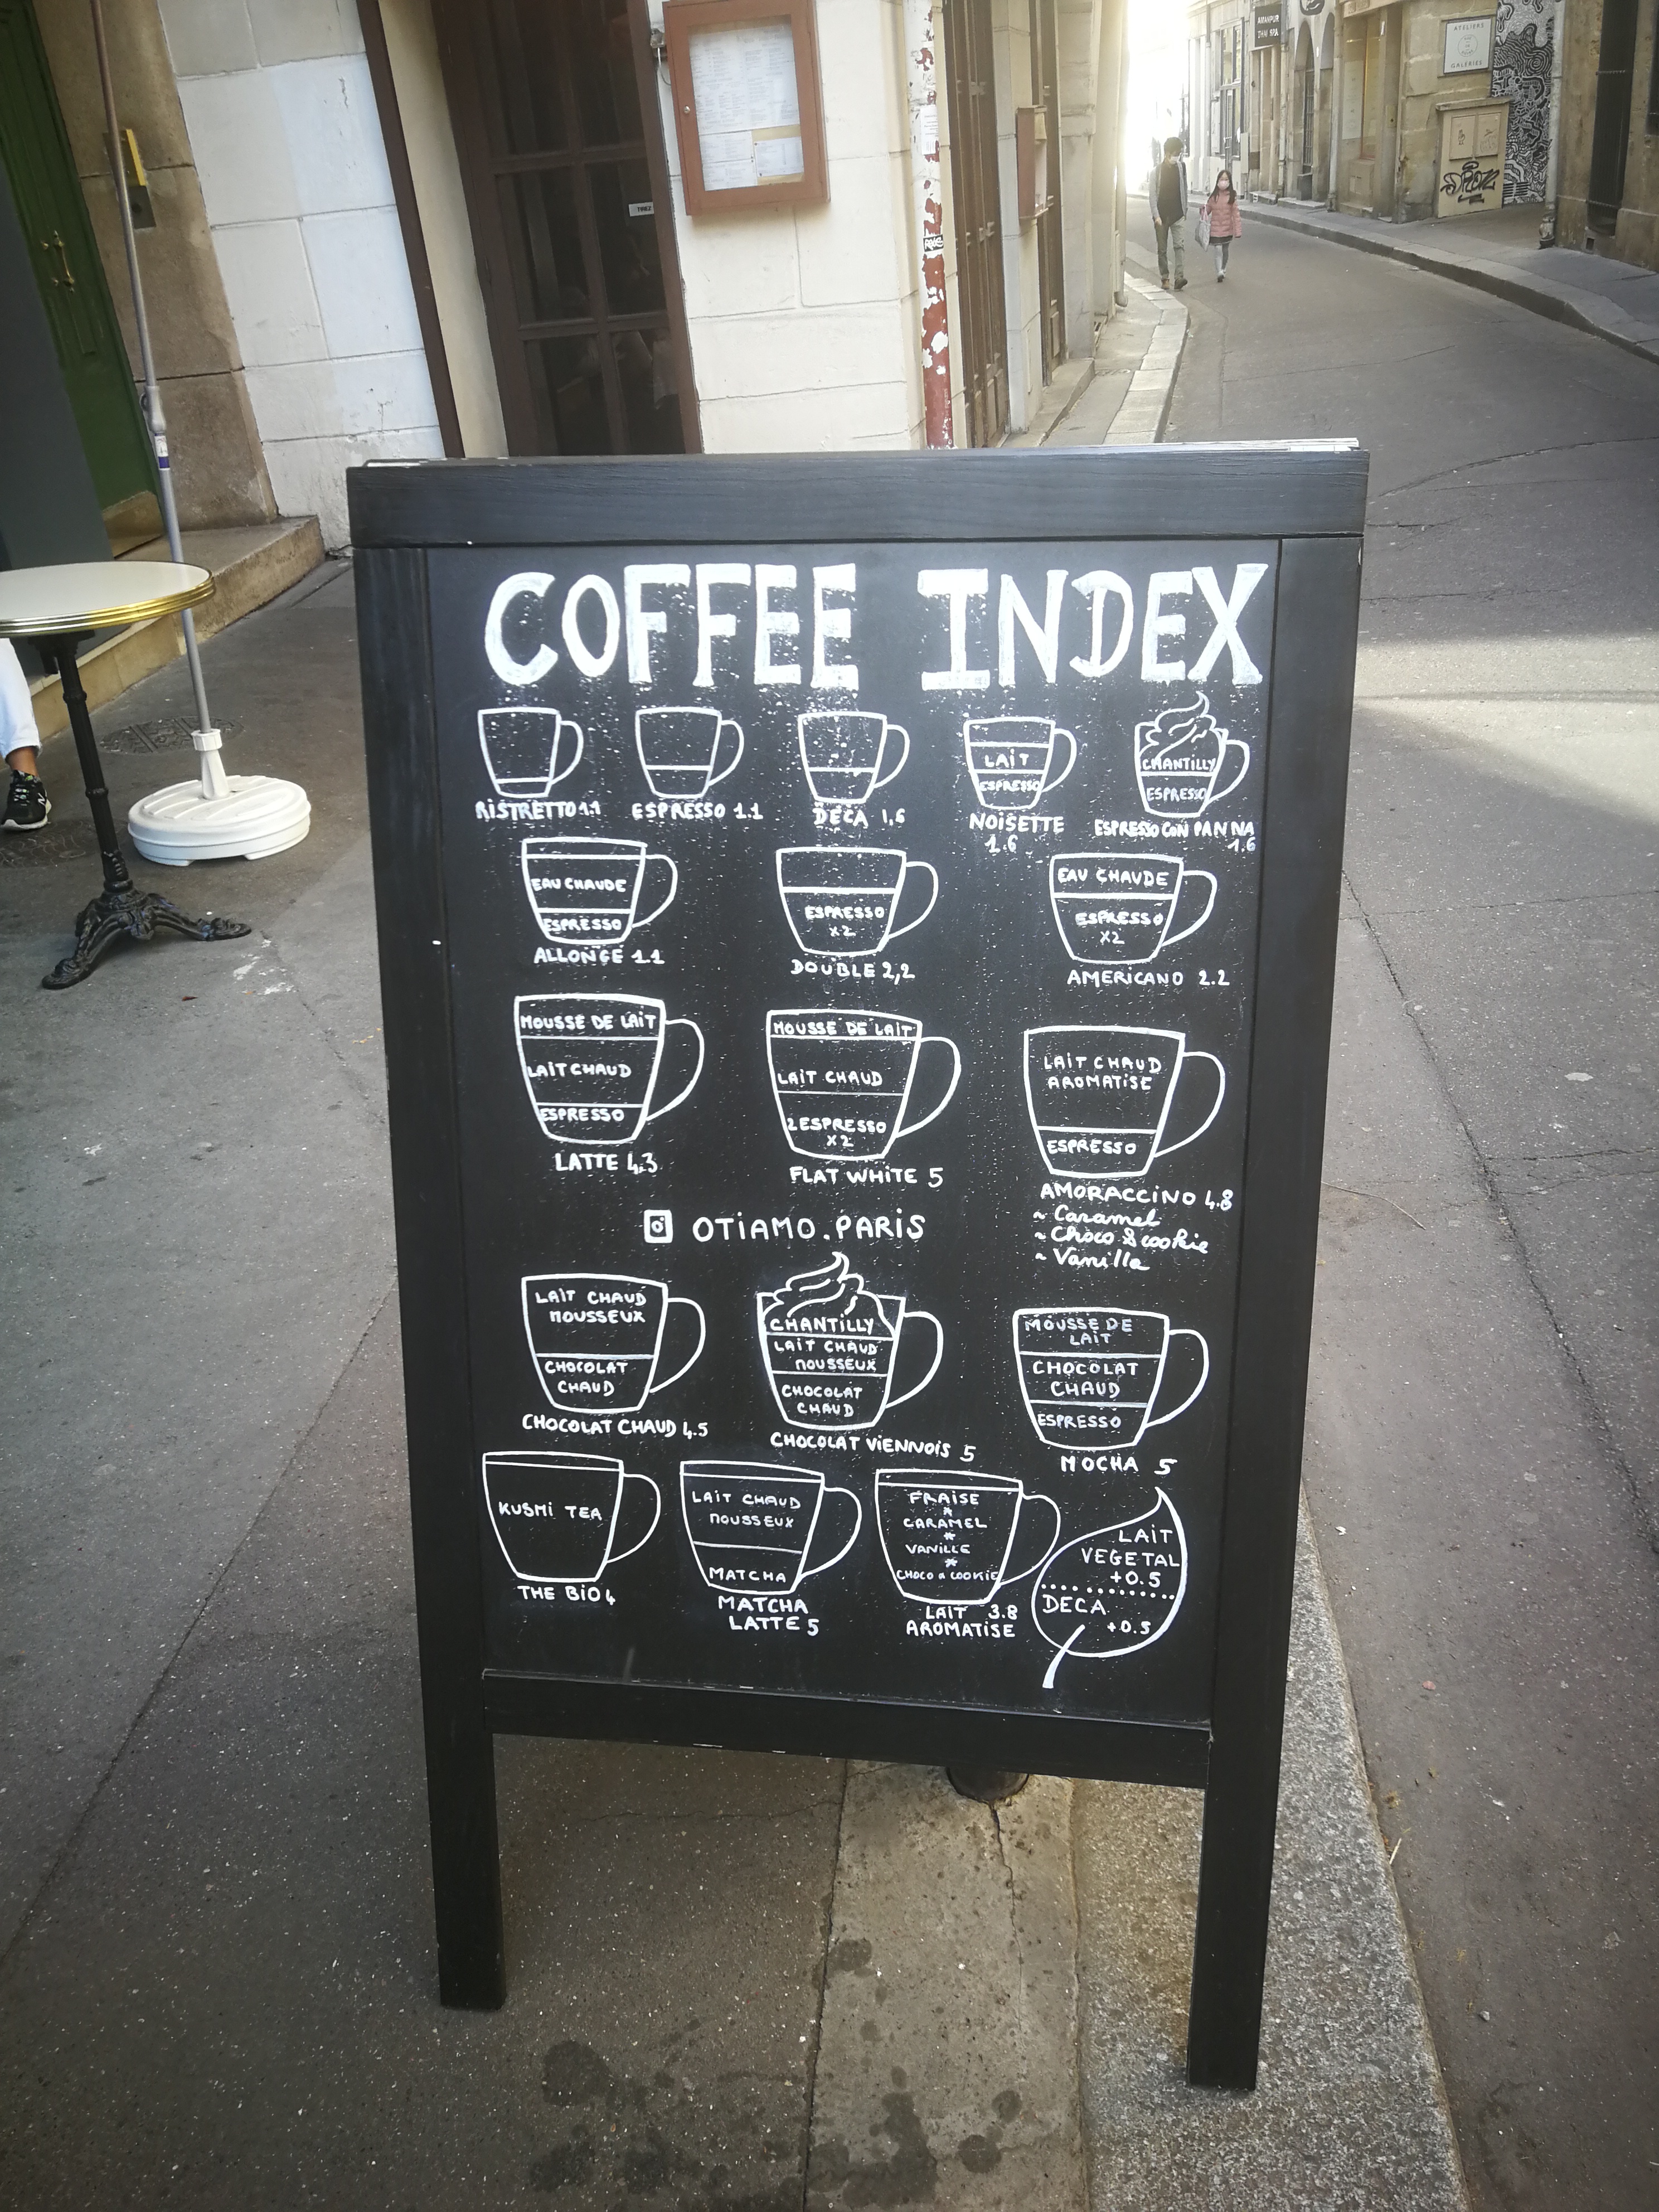 AMANPUR
THAI SPA
ATELIERS
GALERIES
COFFEE INDEX
RISTRETTO 1.1
ESPRESSO 1.1
DECA 1,6
LAIT
ESPRESSO
NOISETTE
1.6
CHANTILLY
ESPRESSO
ESPRESSO CON PANNA
1.6
EAU CHAUDE
ESPRESSO
ALLONGE 1.1
ESPRESSO
X2
DOUBLE 2,2
EAU CHAUDE
ESPRESSO
X2
AMERICANO 2.2
MOUSSE DE LAIT
LAIT CHAUD
ESPRESSO
LATTE 4.3
MOUSSE DE LAIT
LAIT CHAUD
2 ESPRESSO
X2
FLAT WHITE 5
LAIT CHAUD
AROMATISE
ESPRESSO
AMORACCINO 4.8
~ Caramel
~ Choco & cookie
~ Vanilla
OTIAMO.PARIS
LAIT CHAUD
MOUSSEUX
CHOCOLAT
CHAUD
CHOCOLAT CHAUD 4.5
CHANTILLY
LAIT CHAUD
MOUSSEUX
CHOCOLAT
CHAUD
CHOCOLAT VIENNOIS 5
MOUSSE DE
LAIT
CHOCOLAT
CHAUD
ESPRESSO
MOCHA 5
KUSMI TEA
THE BIO 4
LAIT CHAUD
MOUSSEUX
MATCHA
MATCHA
LATTE 5
FRAISE
*
CARAMEL
*
VANILLE
*
CHOCO & COOKIE
LAIT 3.8
AROMATISE
LAIT
VEGETAL
+0.5
DECA
+0.5